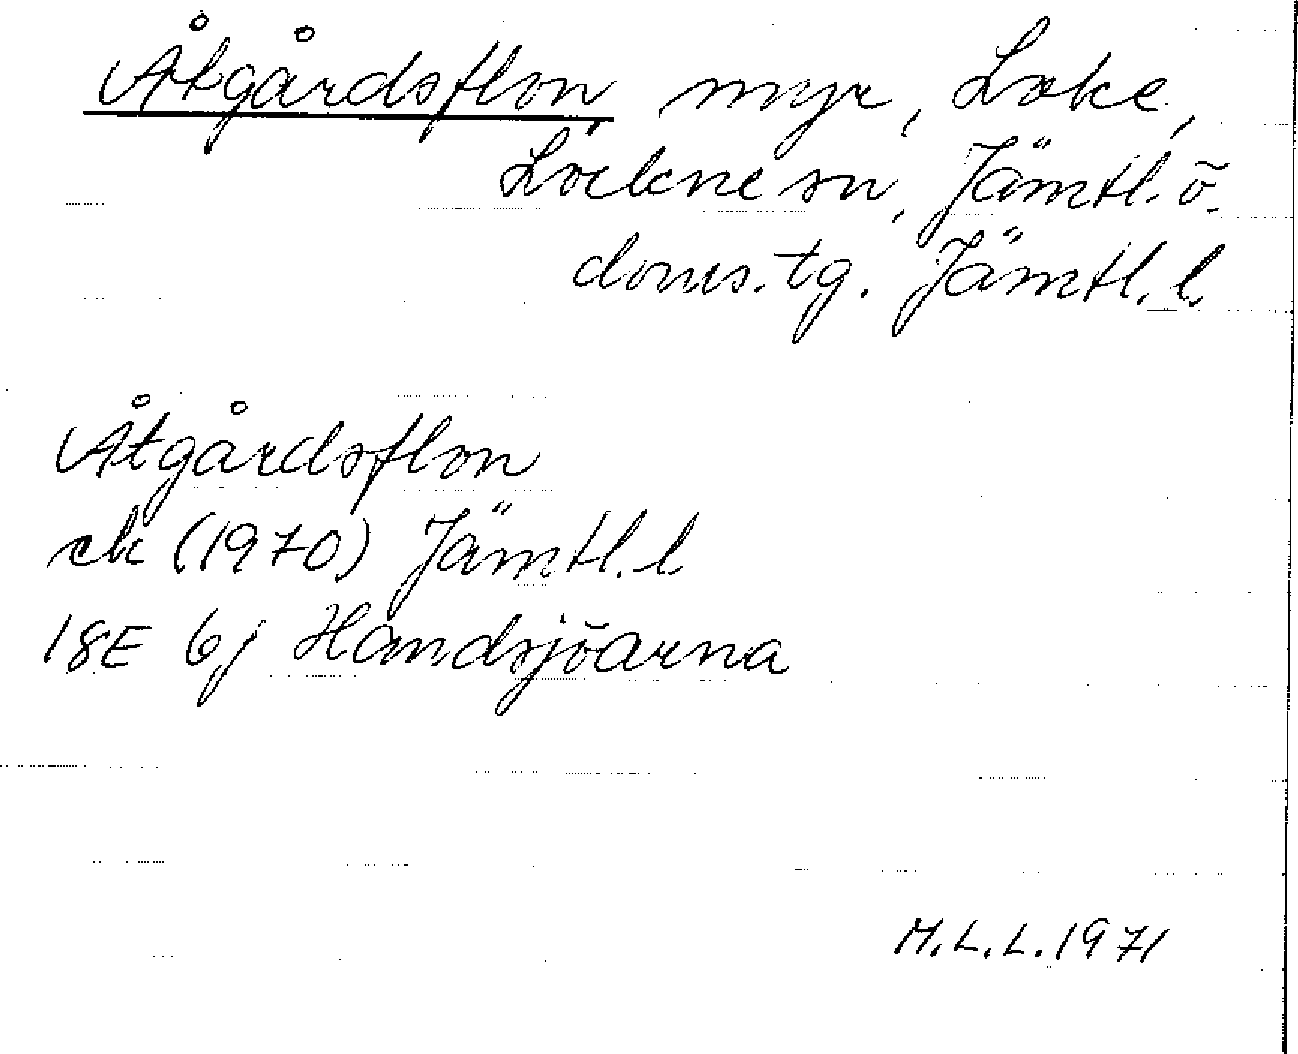 Åtgårdsflon, myr, Loke,
Lockne sn, Jämtl. ö.
doms. tg. Jämtl. l.
Åtgårdsflon
ek (1970) Jämtl. l
18E 6j Handsjöarna
M.L.L. 1971